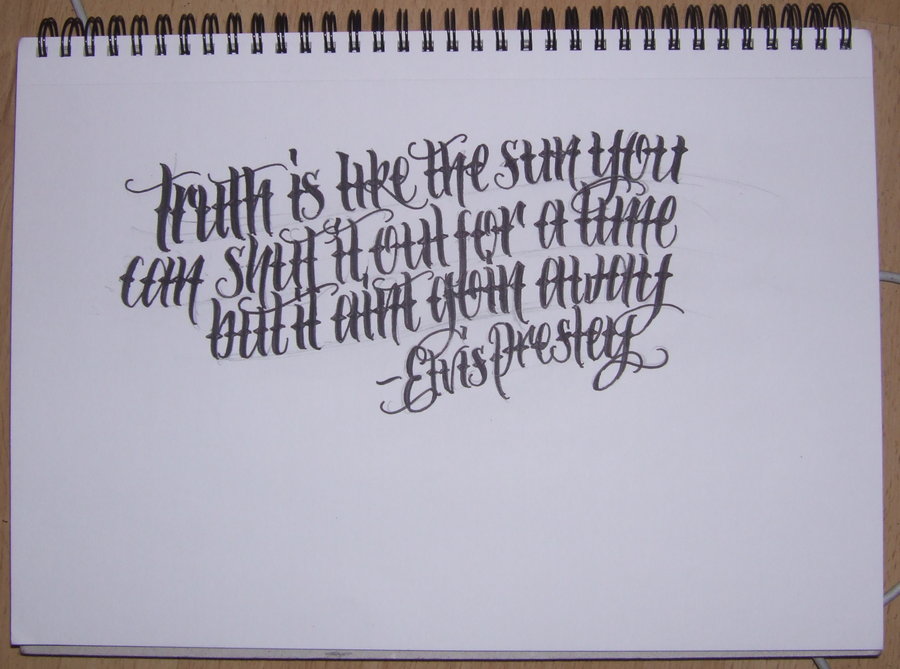 truth is like the sun you
can shut it out for a time
but it aint goin away
-Elvis presley